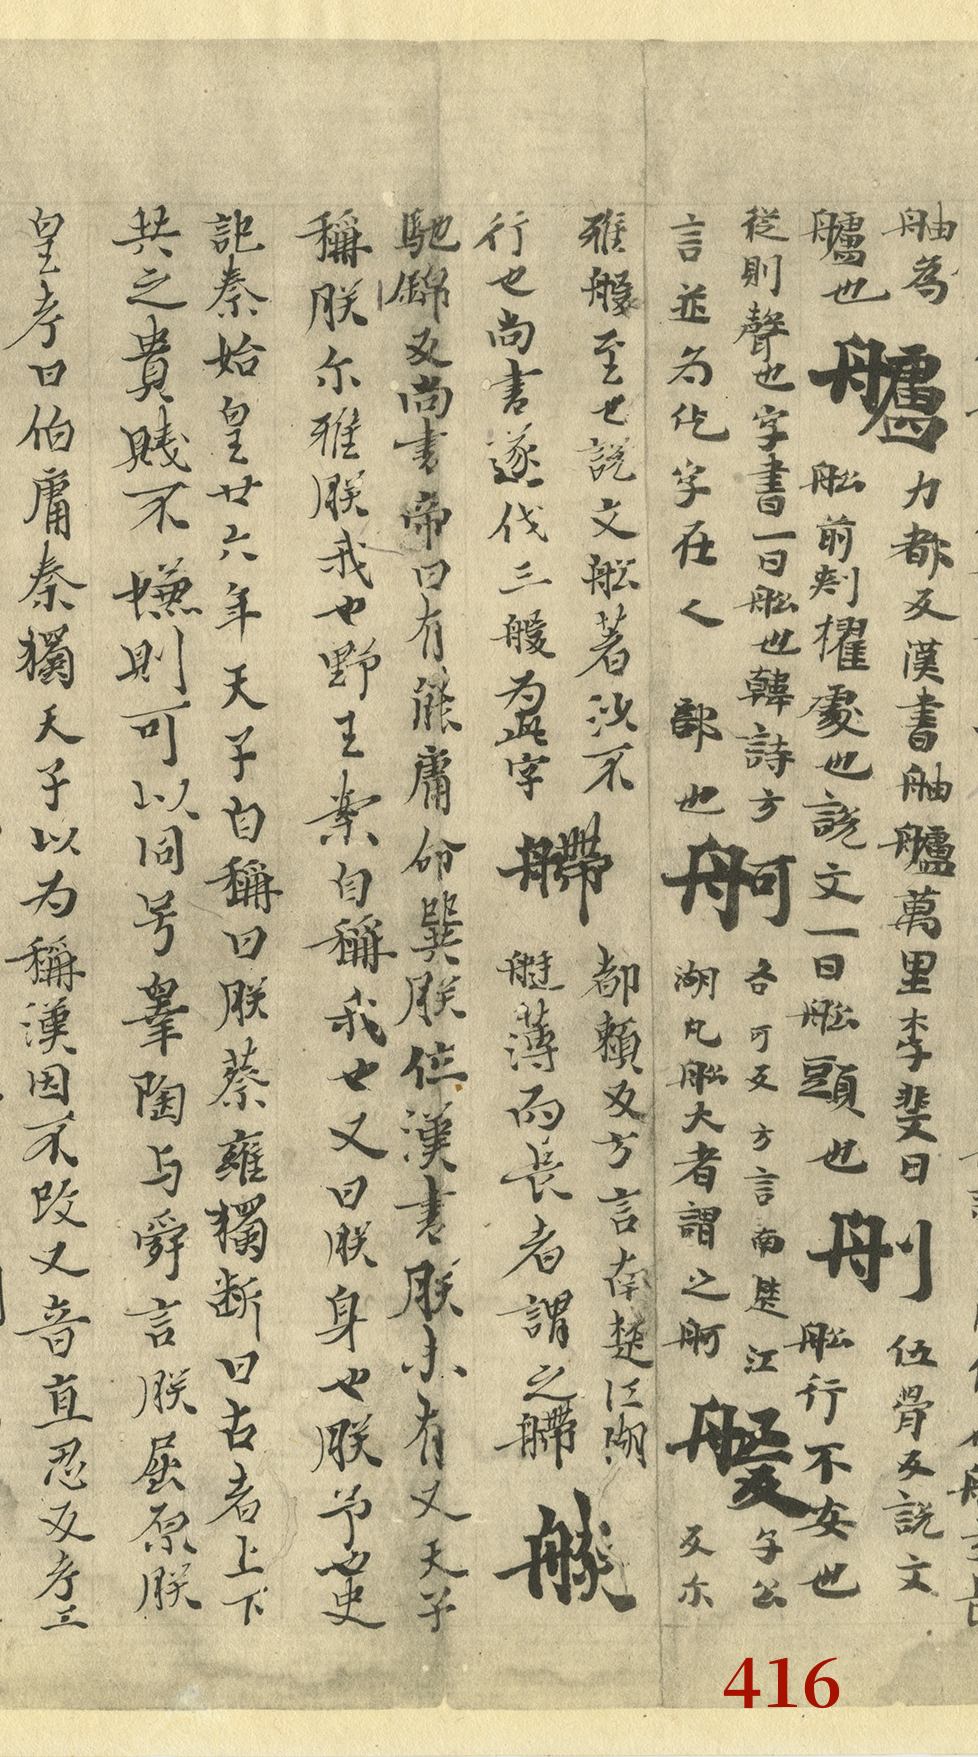 舳為
艫也
艫
力都反漢書舳艫萬里李斐曰
舩前刾櫂處也說文一曰舩頭也
刖
伍骨反說文
舩行不安也
從則聲也字書一曰舩也韓詩方
言並為仡字在人部也
舸
各可反方言南楚江
湖凡舩大者謂之舸
艐
子公
反尒
雅艐至也說文舩著沙不
行也尚書遂伐三艐為此字
艜
都賴反方言南楚江湖
艇薄而長者謂之艜
艅
馳錦反尚書帝曰有能庸命巽朕位漢書朕未有又天子
稱朕尒雅朕我也野王案自稱我也又曰朕身也朕予也史
記秦始皇廿六年天子自稱曰朕蔡雍獨断曰古者上下
共之貴賤不嫌則可以同号皋陶与舜言朕屈原朕
皇考曰伯庸秦獨天子以为稱漢因不改又音直忍反考工
416